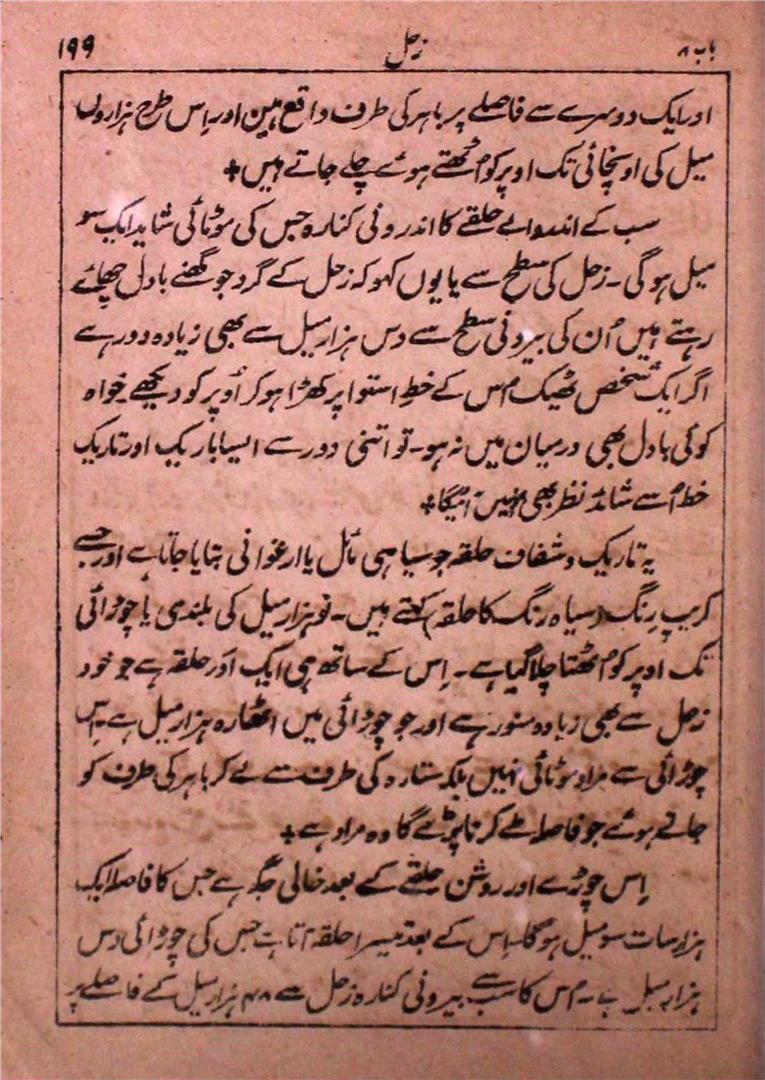 باب ۸ زحل ۱۹۹
اور ایک دوسرے سے فاصلے پر باہر کی طرف واقع ہین اور اِس طرح ہزاروں
میل کی اونچائی تک اوپر کو اُٹھتے ہوئے چلے جاتے ہیں +
سب کے اندر والے حلقے کا اندرونی کنارہ جس کی موٹائی شاید ایک سو
میل ہوگی ۔ زحل کی سطح سے یا یوں کہو کہ زحل کے گرد جو گھنے بادل چھائے
رہتے ہیں اُن کی بیرونی سطح سے دس ہزار میل سے بھی زیادہ دور ہے
اگر ایک شخص ٹھیک اُس کے خطِ استوا پر کھڑا ہو کر اُوپر کو دیکھے خواہ
کوئی بادل بھی درمیان میں نہ ہو ۔ تو اتنی دور سے ایسا باریک اور تاریک
خط اُسے شائد نظر بھی نہیں آئیگا +
یہ تاریک و شفاف حلقہ جو سیاہی مائل یا ارغوانی بتایا جاتا ہے اور جسے
کریپ رِنگ (سیاہ رنگ کا حلقہ) کہتے ہیں ۔ نو ہزار میل کی بلندی یا چوڑائی
تک اوپر کو اُٹھتا چلا گیا ہے ۔ اِس کے ساتھ ہی ایک اَور حلقہ ہے جو خود
زحل سے بھی زیادہ منور ہے اور جو چوڑائی میں اٹھارہ ہزار میل ہے ۔ اِس
چوڑائی سے مراد موٹائی نہیں بلکہ ستارہ کی طرف سے لے کر باہر کی طرف کو
جاتے ہوئے جو فاصلہ طے کرنا پڑے گا وہ مراد ہے +
اِس چوڑے اور روشن حلقے کے بعد خالی جگہ ہے جس کا فاصلہ ایک
ہزار سات سو میل ہوگا ۔ اِس کے بعد تیسرا حلقہ آتا ہے جس کی چوڑائی دس
ہزار میل ہے ۔ اُس کا سب سے بیرونی کنارہ زحل سے ۴۸ ہزار میل کے فاصلے پر